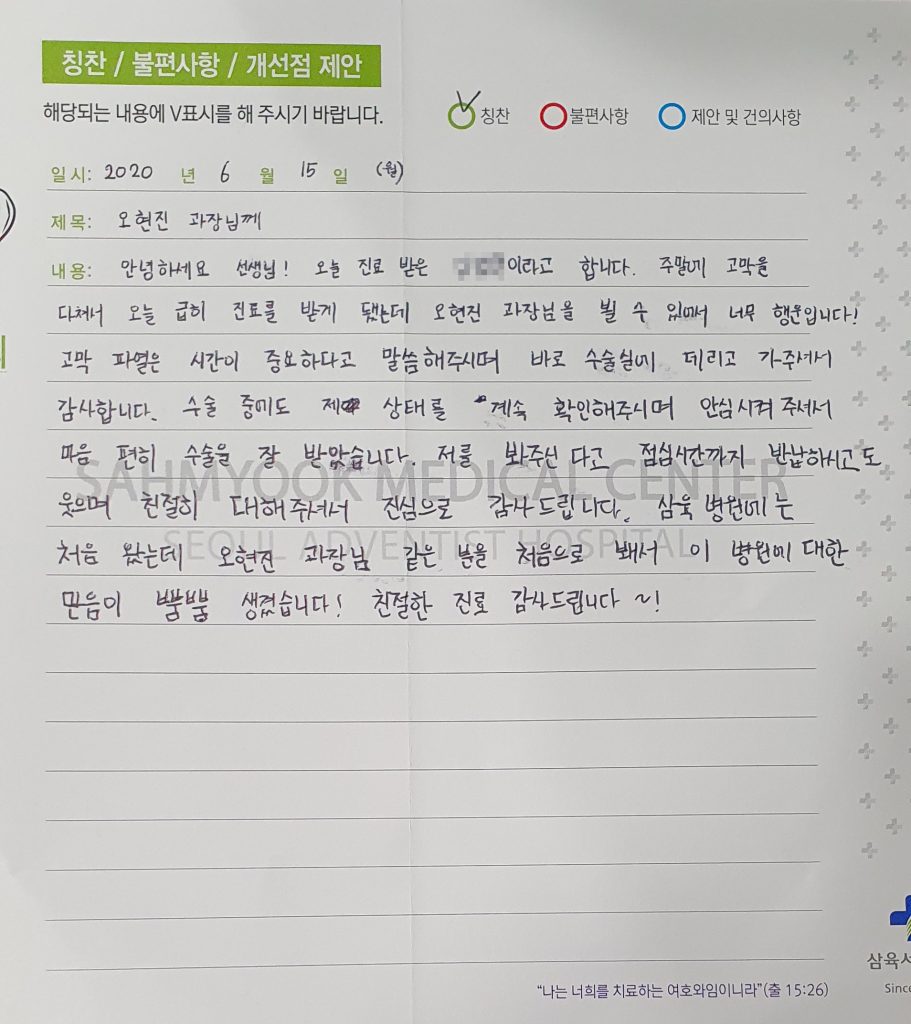 칭찬 / 불편사항 / 개선점 제안
해당되는 내용에 V표시를 해 주시기 바랍니다.
칭찬 불편사항 제안 및 건의사항
일시: 2020 년 6 월 15 일 (월)
제목: 오현진 과장님께
내용: 안녕하세요 선생님! 오늘 진료 받은 이라고 합니다. 주말에 고막을
다쳐서 오늘 급히 진료를 받게 됐는데 오현진 과장님을 뵐 수 있어서 너무 행운입니다!
고막 파열은 시간이 중요하다고 말씀해주시며 바로 수술실에 데리고 가주셔서
감사합니다. 수술 중에도 제 상태를 계속 확인해주시며 안심시켜 주셔서
마음 편히 수술을 잘 받았습니다. 저를 봐주신다고 점심시간까지 반납하시고도
웃으며 친절히 대해주셔서 진심으로 감사드립니다. 삼육병원에는
처음 왔는데 오현진 과장님 같은 분을 처음으로 봬서 이 병원에 대한
믿음이 뿜뿜 생겼습니다! 친절한 진료 감사드립니다 ~!
SAHMYOOK MEDICAL CENTER
SEOUL ADVENTIST HOSPITAL
"나는 너희를 치료하는 여호와임이니라"(출 15:26)
삼육서
Sinc